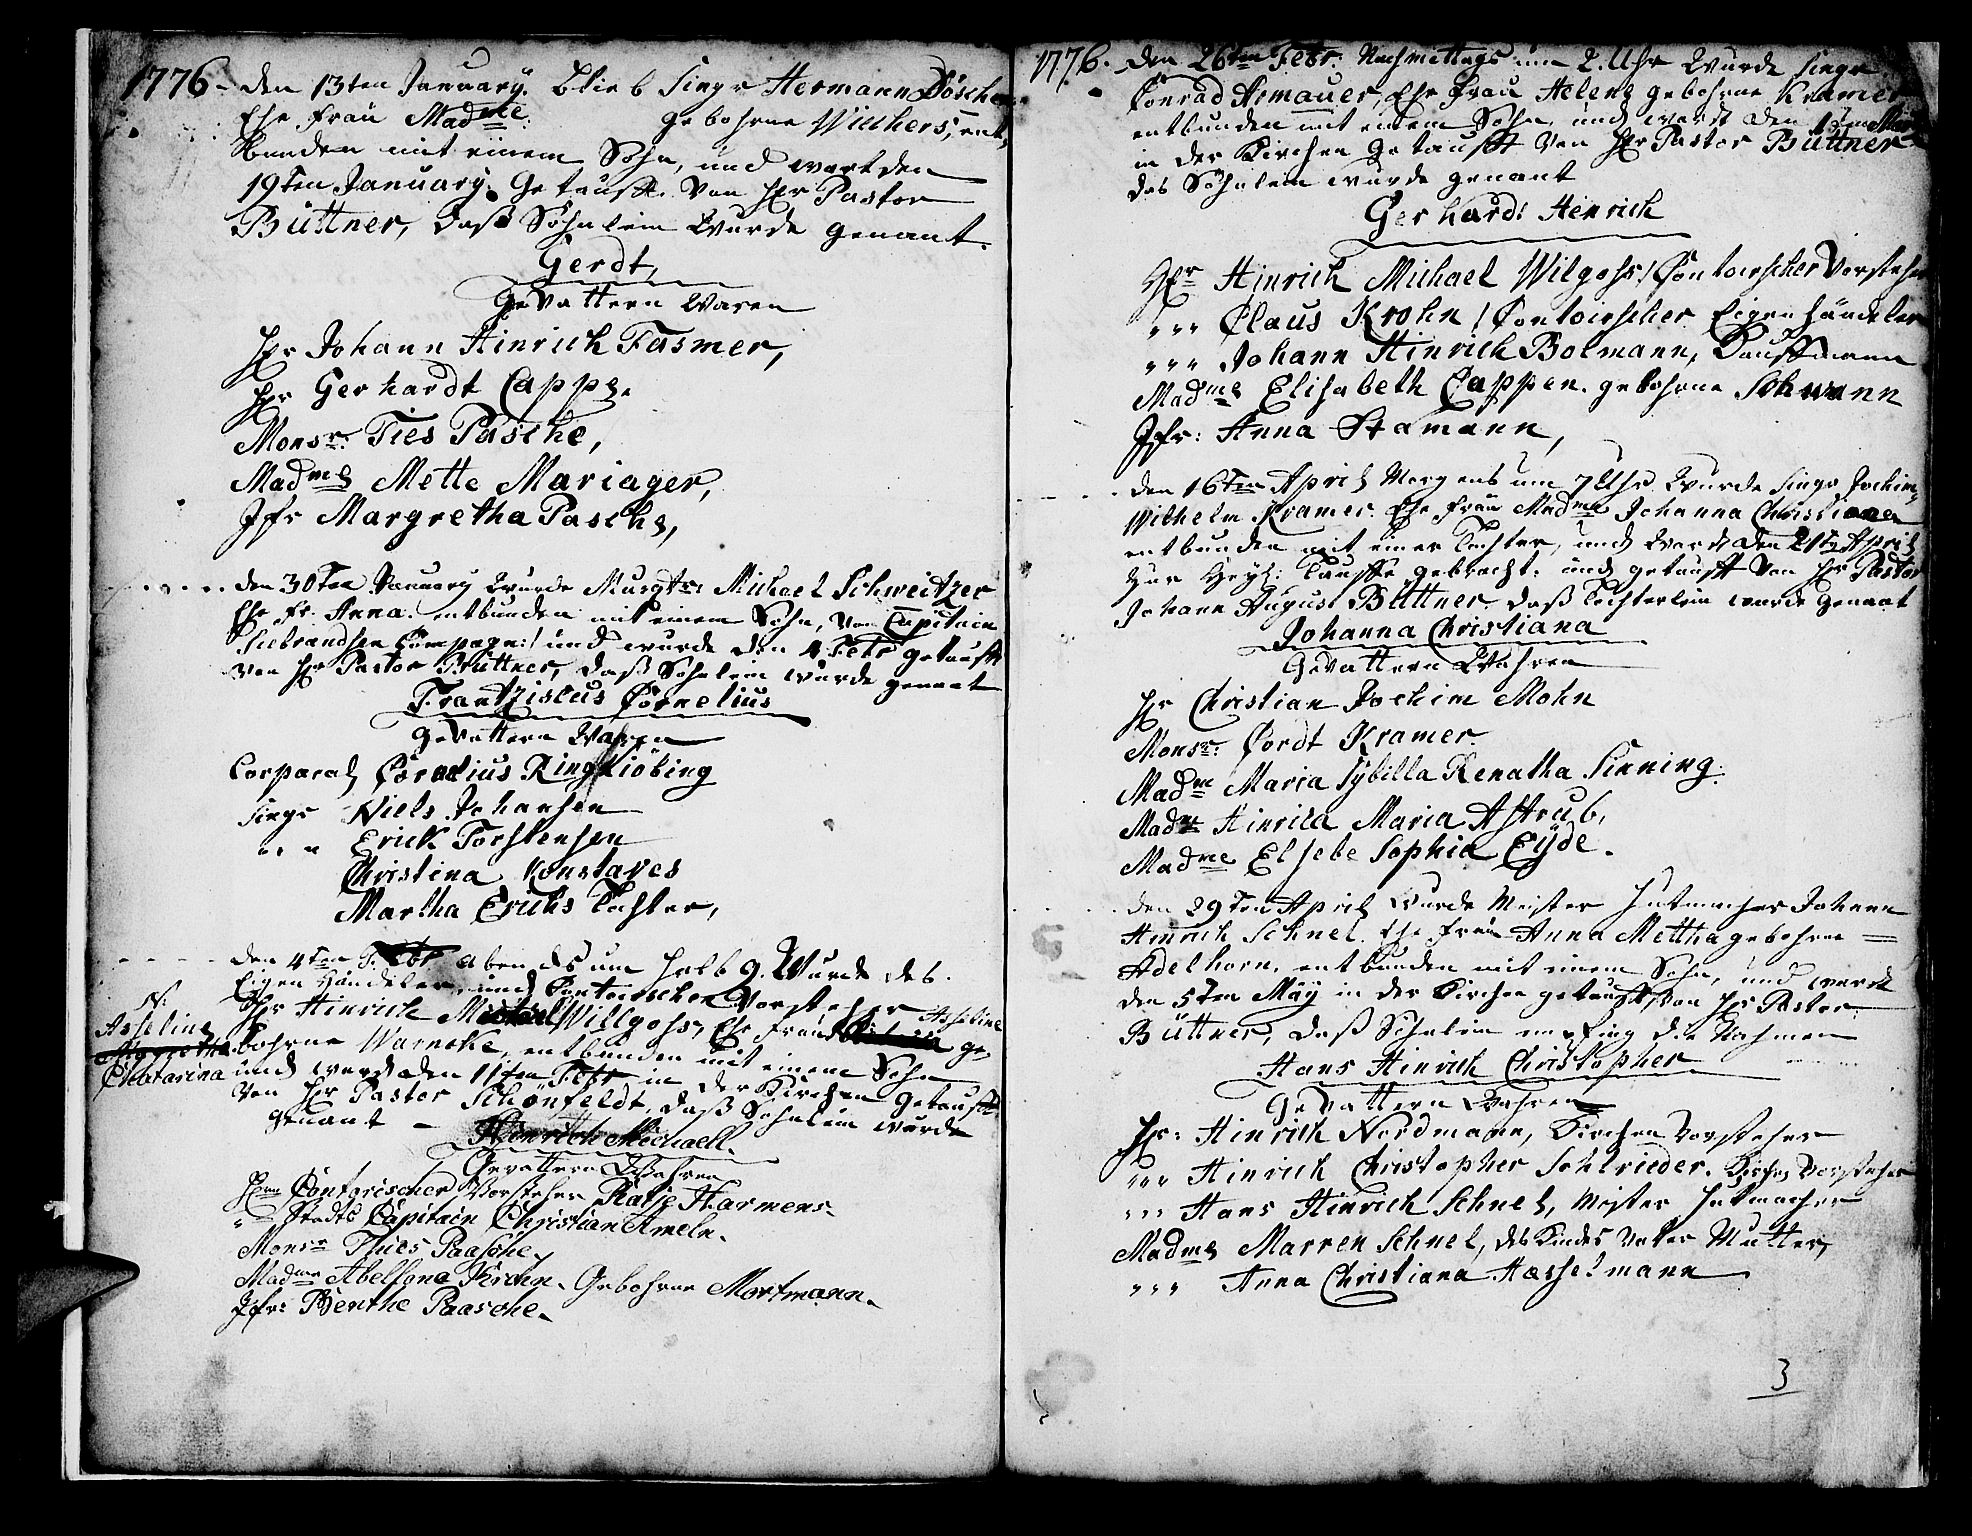 1776. den 13ten January. blieb Singr Hermann Döscher
Ehe Frau Madme gebohrne Wilckers, ent,
bunden mit einem Sohn, und wart den
19ten January. Getaufft. von Hr Pastor
Büttner, daß Söhnlein Wurde genant.
Gerdt,
Gevattern Waren
Hr Johann Hinrich Fasmer,
Hr Gerhardt Cappe.
Monsr. Ties Pasche,
Madme Mette Mariager,
Jfr Margretha Pasche,
den 30ten January Wurde Musqtr. Michael Schweitzer
Ehe Fr. Anna. entbunden mit einem Sohn, von Capitain
Siebrandsen Compagn: / und wurde den 4 Febr getaufft
von Hr Pastor Büttner, daß Söhnlein wurde genant
Frantziscus Cornelius
Gevattern Waren
Corporal Cornelius Ringkiöbing
Singr Niels Johansen
" " " Erick Torstensen
Christina Konstaves
Martha Erichs Tochter,
den 4ten Febr abends um halb 9. Wurde des
Eigen Händeler und Contoirschen Vorsteher
Hr Hinrich Michael Willgohs, Ehe Frau Asseline
N:
Asseline
Margretha
Chatarina
bohrne Warncke, entbunden mit einem Sohn
und ward den 11ten Febr in der Kirchen getaufft
von Hr Pastor Schönfeldt, daß Söhnlein wurde
genant – Hinrich Michaell.
Gevattern Wahren
Hrn Contorischer Vorsteher Ratje Harmens.
" – Stadts Capitain Christian Ameln.
Monsr Thies Paasche,
Madme Abelsone Kirchn. Gebohrne Mortmann.
Jfr: Benthe Paasche.
1776. den 26ten Febr. Nachmittags um 2. Uhr Wurde Singr
Conrad Armauer, Ehe Frau Helene gebohrne Kramer
entbunden mit einem Sohn, und ward den
in der Kirchen Getaufft von Hr Pastor Büttner
das Söhnlein wurde genant
Gerhard: Henrich
Hr Hinrich Michael Wilgohs / Contoirscher Vorsteher
" " " Claus Krohn / Contoirscher Eigenhändeler
" " " Johann Hinrich Bolmann, Kauffmann
Madme Elisabeth Cappen. gebohrne Schwann
Jfr: Anna Stamann,
den 16ten April Morgens um 7 Uhr Wurde Singr Jochim
Wilhelm Kramer. Ehe Frau Madme Johanna Christiana
entbunden mit einer Tochter, und Ward den 21ten April
zur Heyl: Tauffe gebracht. und getaufft von Hr Pastor
Johann August Büttner. daß Töchterlein wurde genant
Johanna Christiana
Gevattern Wahren
Hr Christian Jochim Mohn
Monsr. Cordt Kramer.
Madm Maria Sybilla Renatha Sinning.
Madm Hinrica Maria Astrub,
Madme Elsebe Sophia Eyde.
den 29ten April wurde Meister Hutmacher Johann
Hinrich Schnel. Ehe Frau Anna Mettha gebohrne =
Adelhorn, entbunden mit einem Sohn, und ward
den 5ten May in der Kirchen getaufft, von Hr Pastor
Büttner, daß Söhnlein empfing die Nahmen
Hans Hinrich Christopher
Gevattern Wahren
Hr: Hinrich Nordmann, Kirchen Vorsteher
" " " Hinrich Christopher Sohlrieder. Kirchen Vorsteher
" " " Hans Hinrich Schnel, Meister Hutmacher
Madme Marren Schnel, des Kindes Vater Mutter,
" " " Anna Christiana Hasselmann
3